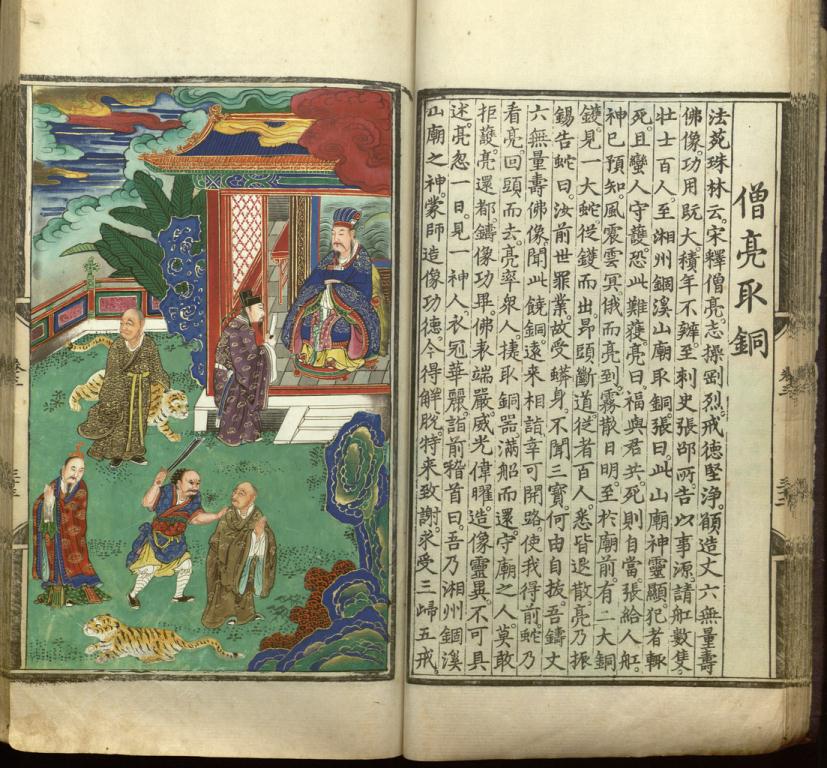 僧亮取銅
法苑珠林云。宋釋僧亮。志操剛烈。戒德堅淨。願造丈六無量壽
佛像。功用既大。積年不辦。至刺史張邵所。告以事源。請舡數隻。
壯士百人。至湘州錮溪山廟取銅。張曰。此山廟神靈顯。犯者輒
死。且蠻人守護。恐此難獲。亮曰。福與君共。死則自當。張給人舡。
神已預知。風震雲冥。俄而亮到。霧散日明。至於廟前。有二大銅
鑊。見一大蛇從鑊而出。昂頭斷道。從者百人。悉皆退散。亮乃振
錫告蛇曰。汝前世罪業。故受蟒身。不聞三寶。何由自拔。吾鑄丈
六無量壽佛像。聞此饒銅。遠來相詣。幸可開路。使我得前。蛇乃
看亮。回頭而去。亮率衆人。捷取銅器滿船而還。守廟之人。莫敢
拒護。亮還都。鑄像功畢。佛表端嚴。威光偉曜。造像靈異。不可具
述。亮忽一日。見一神人。衣冠華麗。詣前稽首曰。吾乃湘州錮溪
山廟之神。蒙師造像功德。今得解脫。特來致謝。求受三歸五戒。